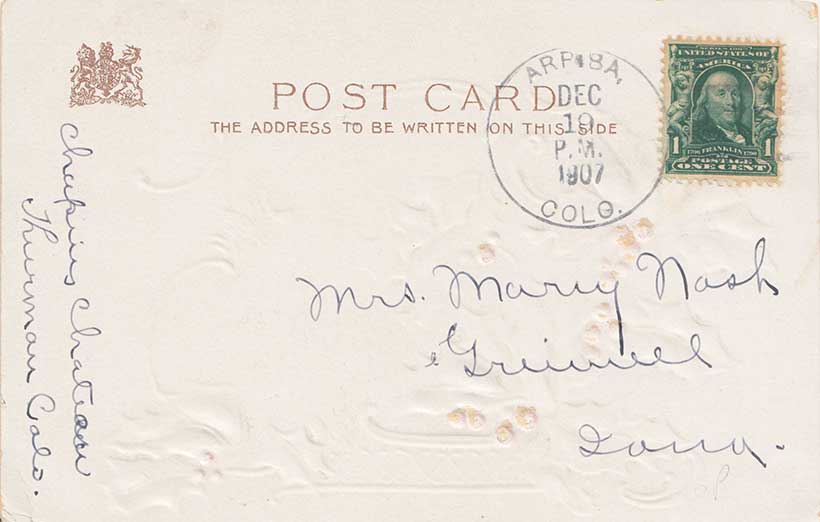 POST CARD
THE ADDRESS TO BE WRITTEN ON THIS SIDE
ARRIBA,
DEC
19
P.M.
1907
COLO.
SERIES 1902
UNITED STATES OF
AMERICA
1706 FRANKLIN 1790
1 1
POSTAGE
ONE CENT
Mrs. Marry Nash
Grinnell
Iowa.
Chapins Chateau
Thurman Colo.